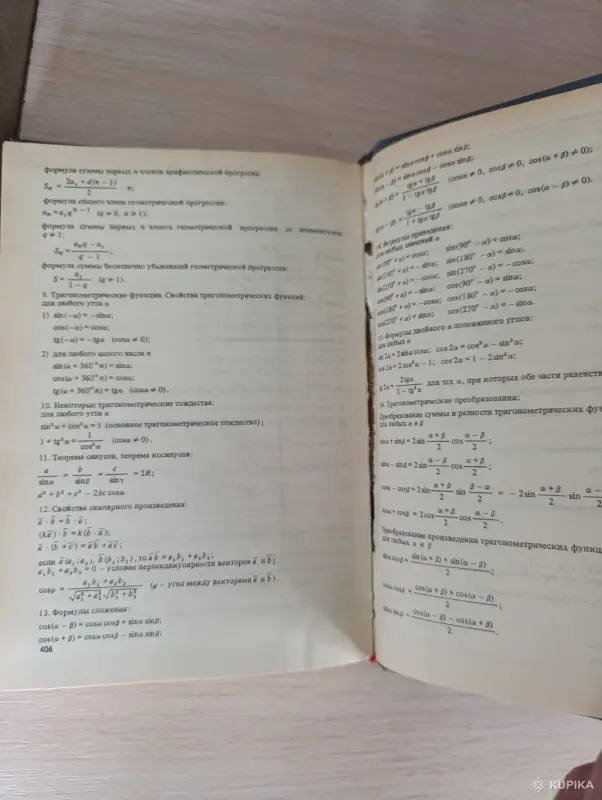 формула суммы первых n членов арифметической прогрессии:
Sₙ = (2a₁ + d(n − 1))/2 · n;
формула общего члена геометрической прогрессии:
aₙ = a₁qⁿ⁻¹ (q ≠ 0, n > 1);
формула суммы первых n членов геометрической прогрессии со знаменателем
q ≠ 1:
Sₙ = (aₙq − a₁)/(q − 1);
формула суммы бесконечно убывающей геометрической прогрессии:
S = a₁/(1 − q) (q ≠ 1).
9. Тригонометрические функции. Свойства тригонометрических функций:
для любого угла α
1) sin(−α) = −sinα;
cos(−α) = cosα;
tg(−α) = −tgα (cosα ≠ 0);
2) для любого целого числа n
sin(α + 360°n) = sinα;
cos(α + 360°n) = cosα;
tg(α + 360°n) = tgα (cosα ≠ 0).
10. Некоторые тригонометрические тождества:
для любого угла α
sin²α + cos²α = 1 (основное тригонометрическое тождество);
1 + tg²α = 1/cos²α (cosα ≠ 0).
11. Теорема синусов, теорема косинусов:
a/sinα = b/sinβ = c/sinγ = 2R;
a² = b² + c² − 2bc cosα.
12. Свойства скалярного произведения:
a⃗ · b⃗ = b⃗ · a⃗;
(ka⃗) · b⃗ = k(b⃗ · a⃗);
a⃗ · (b⃗ + c⃗) = a⃗b⃗ + a⃗c⃗;
если a⃗(a₁; a₂), b⃗(b₁; b₂), то a⃗b⃗ = a₁b₁ + a₂b₂;
a₁b₁ + a₂b₂ = 0 – условие перпендикулярности векторов a⃗ и b⃗;
cosφ = (a₁b₁ + a₂b₂)/(√(a₁² + a₂²) √(b₁² + b₂²)) (φ – угол между векторами a⃗ и b⃗).
13. Формулы сложения:
cos(α − β) = cosα cosβ + sinα sinβ;
cos(α + β) = cosα cosβ − sinα sinβ;
406
(α + β) = sinα cosβ + cosα sinβ;
(α − β) = sinα cosβ − cosα sinβ;
(α + β) = (tgα + tgβ)/(1 − tgα tgβ) (cosα ≠ 0, cosβ ≠ 0, cos(α + β) ≠ 0);
(α − β) = (tgα − tgβ)/(1 + tgα tgβ) (cosα ≠ 0, cosβ ≠ 0, cos(α − β) ≠ 0).
Формулы приведения:
для любых значений α
sin(90° + α) = cosα; sin(90° − α) = cosα;
sin(180° + α) = −sinα; sin(180° − α) = sinα;
sin(270° + α) = −cosα; sin(270° − α) = −cosα;
cos(90° + α) = −sinα; cos(90° − α) = sinα;
cos(180° + α) = −cosα; cos(180° − α) = −cosα;
cos(270° + α) = sinα; cos(270° − α) = −sinα.
15. Формулы двойного и половинного углов:
для любых α
sin 2α = 2sinα cosα; cos 2α = cos²α − sin²α;
cos 2α = 2cos²α − 1; cos 2α = 1 − 2sin²α;
tg 2α = 2tgα/(1 − tg²α) для тех α, при которых обе части равенств
16. Тригонометрические преобразования:
Преобразование суммы и разности тригонометрических фун
для любых α и β
sinα + sinβ = 2sin (α + β)/2 cos (α − β)/2;
sinα − sinβ = 2sin (α − β)/2 cos (α + β)/2;
cosα − cosβ = 2sin (α + β)/2 sin (β − α)/2 = −2sin (α + β)/2 sin (α −
cosα + cosβ = 2cos (α + β)/2 cos (α − β)/2.
Преобразование произведения тригонометрических функц
для любых α и β
sinα cosβ = (sin(α + β) + sin(α − β))/2;
cosα cosβ = (cos(α + β) + cos(α − β))/2;
sinα sinβ = (cos(α − β) − cos(α + β))/2.
KUPIKA